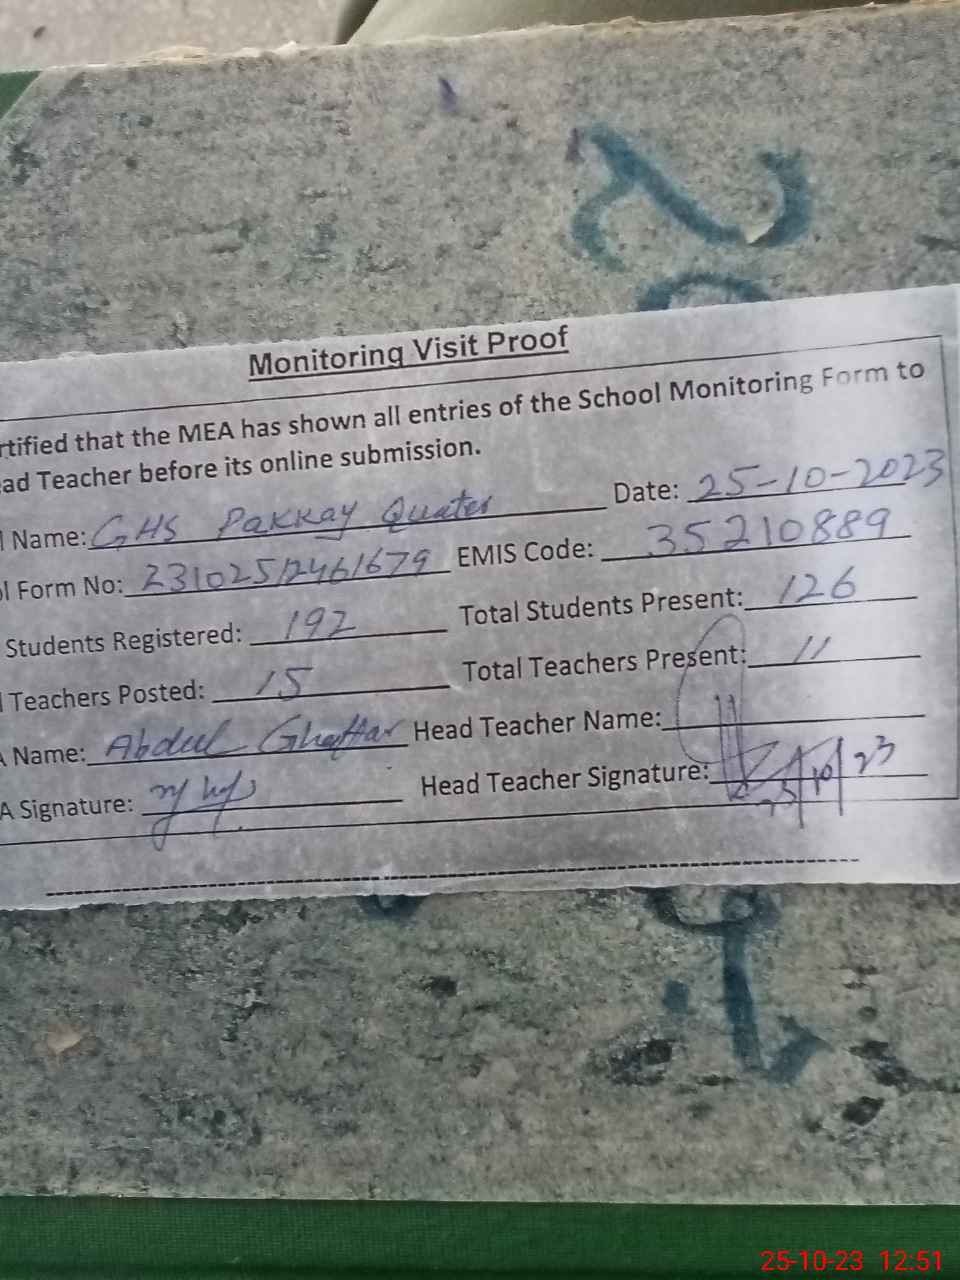 Monitoring Visit Proof
rtified that the MEA has shown all entries of the School Monitoring Form to
ad Teacher before its online submission.
l Name: GHS Pakkay Quater Date: 25-10-2023
ol Form No: 231025124461679 EMIS Code: 35210889
Students Registered: 192 Total Students Present: 126
l Teachers Posted: 15 Total Teachers Present: 11
A Name: Abdul Ghaffar Head Teacher Name:
A Signature: Head Teacher Signature: 25/10/23
25-10-23 12:51